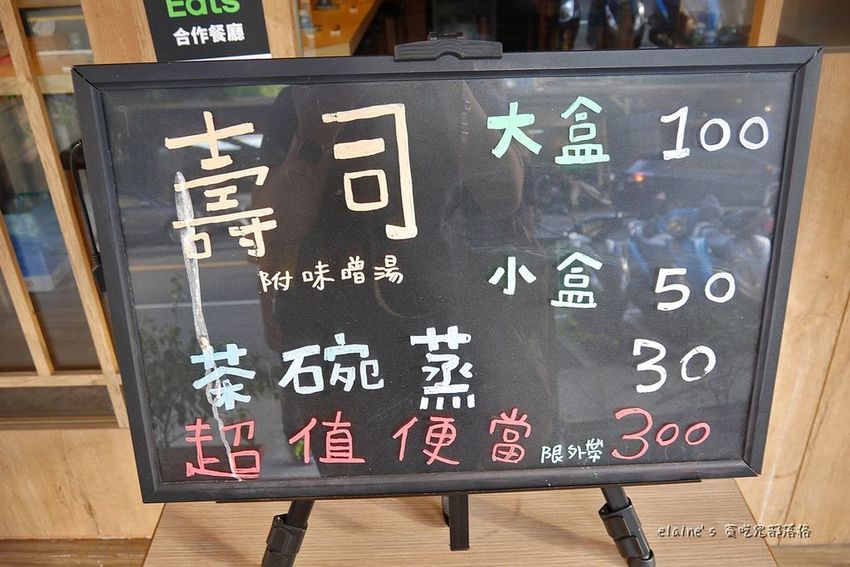 Eats
合作餐廳
壽司 大盒 100
附味噌湯 小盒 50
茶碗蒸 30
超值便當 限外帶 300
elaine's 貪吃鬼部落格